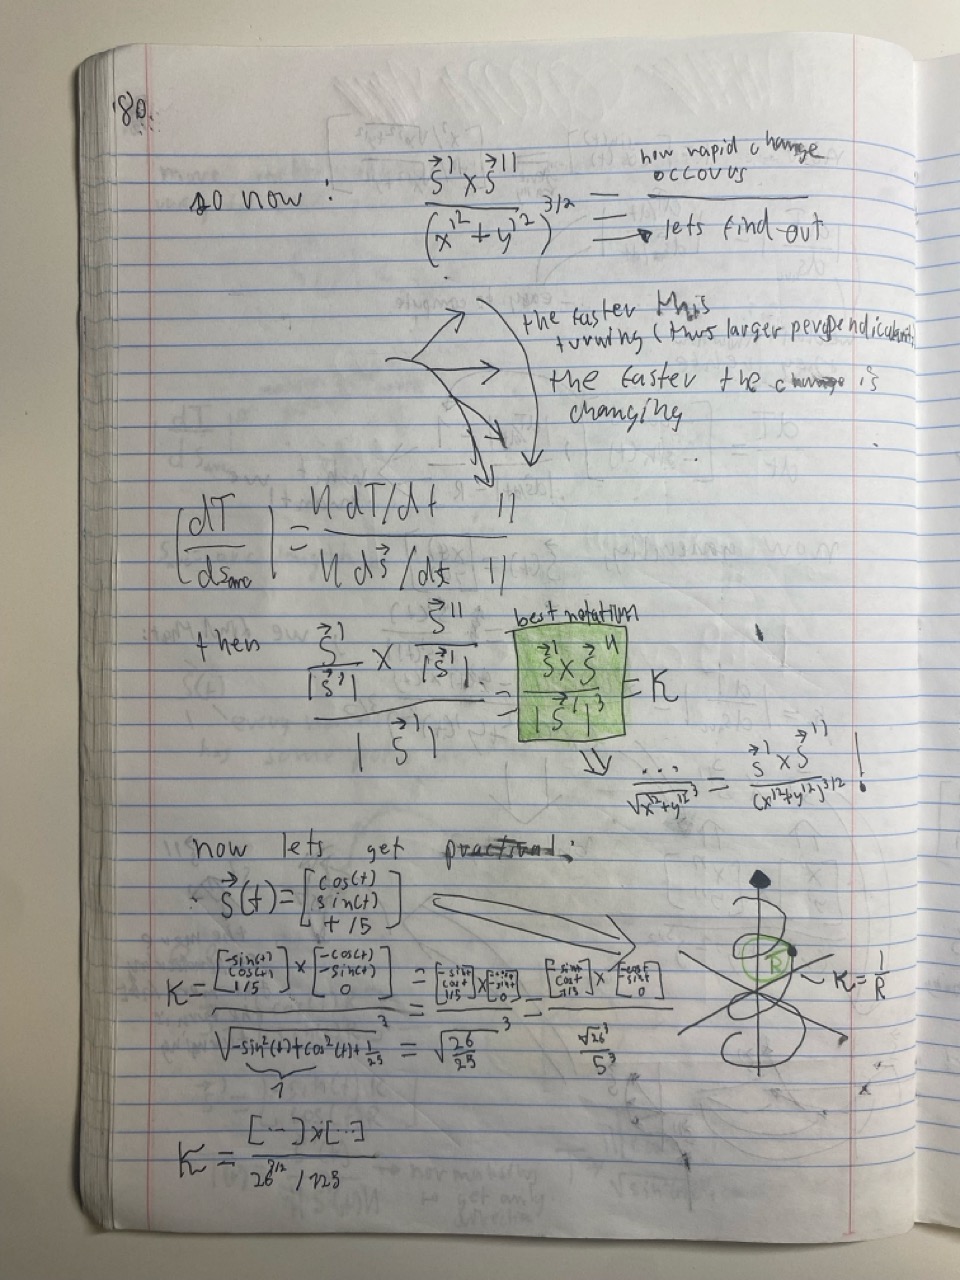 80.
so now : (s⃗' × s⃗'') / (x'² + y'²)^3/2 = how rapid change
occours
→ lets find out
the faster this
turning (thus larger perpendicularity)
the faster the change is
changing
|dT/ds_arc| = ||dT/dt|| / ||ds⃗/dt||
best notation
then ((s⃗'/|s⃗'|) × (s⃗''/|s⃗'|)) / |s⃗'| = (s⃗' × s⃗'') / |s⃗'|³ = K
⇒ ... / √(x'²+y'²)³ = (s⃗' × s⃗'') / (x'²+y'²)^3/2 !
now lets get practical:
s⃗(t) = [cos(t) sin(t) t/5]
K = ([-sin(t) cos(t) 1/5] × [-cos(t) -sin(t) 0]) / √(-sin²(t)+cos²(t)+1/25)³ = ([-sint cost 1/5] × [-cost -sint 0]) / √(26/25)³ = ([-sint cost 1/5] × [-cost -sint 0]) / (√26³ / 5³)
1
R
K = 1/R
K = ([...] × [...]) / (26^3/2 / 125)